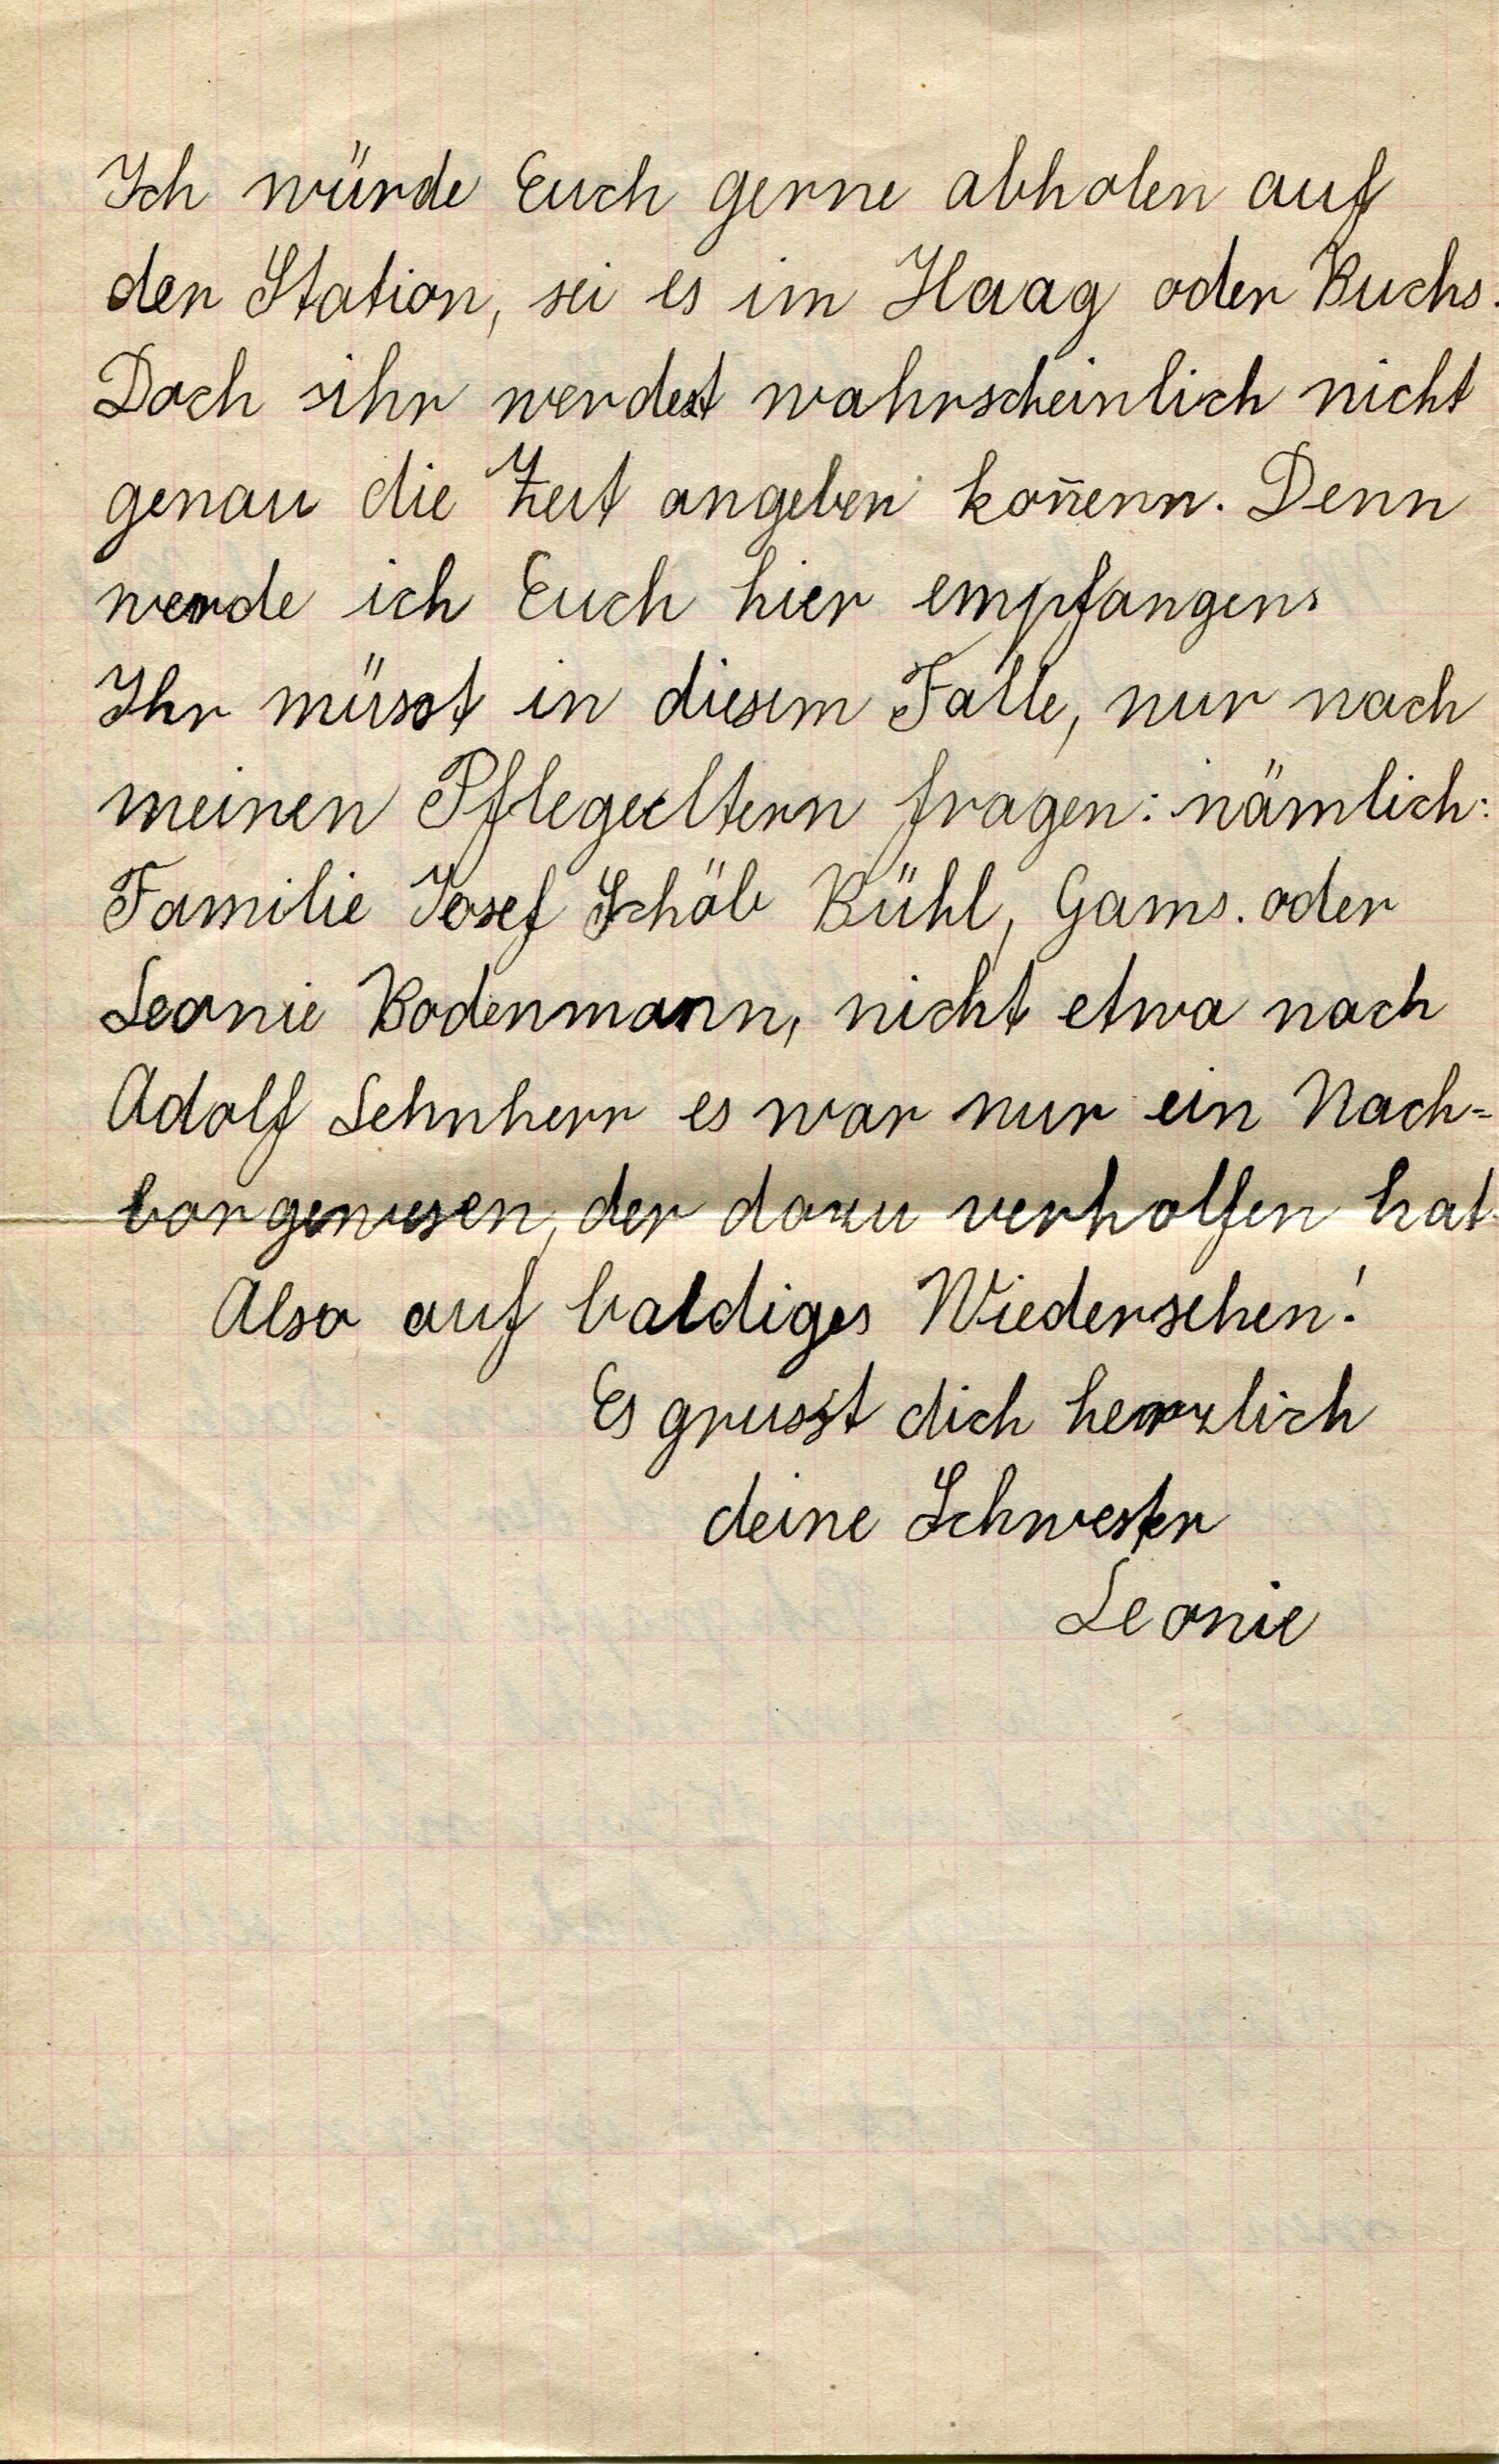 Ich würde Euch gerne abholen auf
der Station, sei es im Haag oder Buchs.
Doch ihr werdet wahrscheinlich nicht
genau die Zeit angeben kon̄enn. Denn
werde ich Euch hier empfangen.
Ihr müsst in diesem Falle, nur nach
meinen Pflegeeltern fragen: nämlich:
Familie Josef Schöb Bühl, Gams. oder
Leonie Bodenmann, nicht etwa nach
Adolf Lehnherr es war nur ein Nach-
bar gewesen, der dazu verholfen hat
Also auf baldiges Wiedersehen!
Es grusst dich herzlich
deine Schwester
Leonie